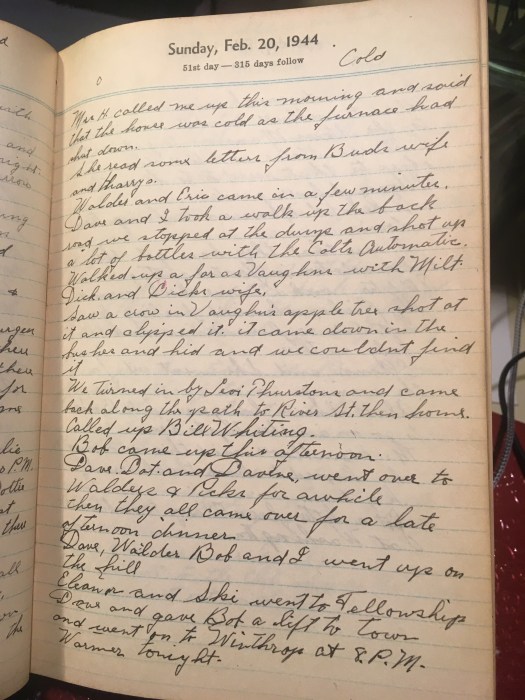 Sunday, Feb. 20, 1944
51st day — 315 days follow
Cold
Mrs H. called me up this morning and said
that the house was cold as the furnace had
shut down.
She read some letters from Buds wife
and Harrys.
Walder and Eric came in a few minutes.
Dave and I took a walk up the back
road we stopped at the dump and shot up
a lot of bottles with the Colts Automatic.
Walked up a far as Vaughns with Milt.
Dick, and Dicks wife,
Saw a crow in Vaughn's apple tree shot at
it and it came down in the
bushes and hid and we couldnt find
it
We turned in by Levi Thurstons and came
back along the path to River St. then home.
Called up Bill Whiting.
Bob came up this afternoon.
Dave. Dot. and went over to
Walders & for awhile
then they all came over for a late
afternoon dinner
Dave, Walder Bob and I went up on
the hill
Eleanor and Ski went to Fellowship
Dave and gave Bob a lift to town
and went on to Winthrop at 8. P.M.
Warmer tonight.